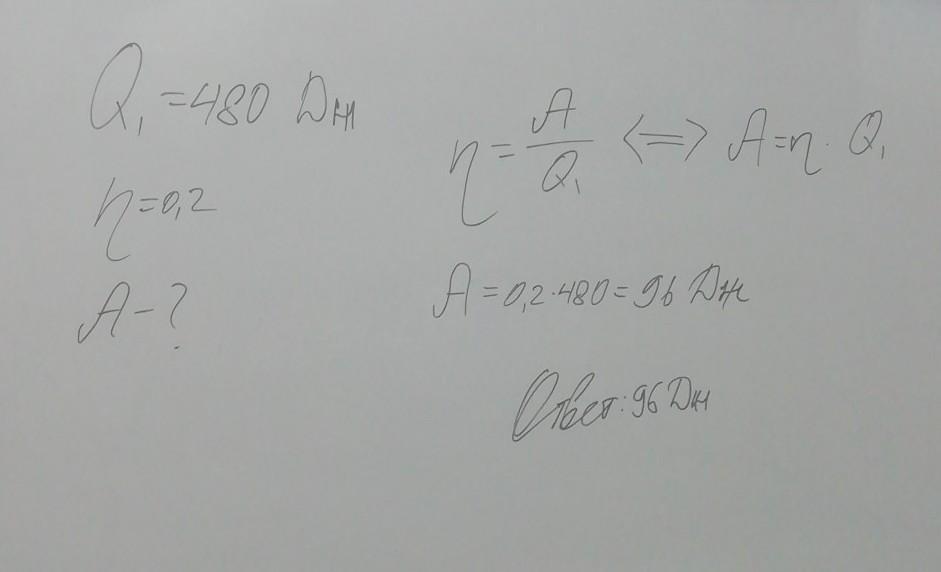 Q₁ = 480 Дж
η = 0,2
A - ?
η = A / Q₁ <=> A = η · Q₁
A = 0,2 · 480 = 96 Дж
Ответ: 96 Дж